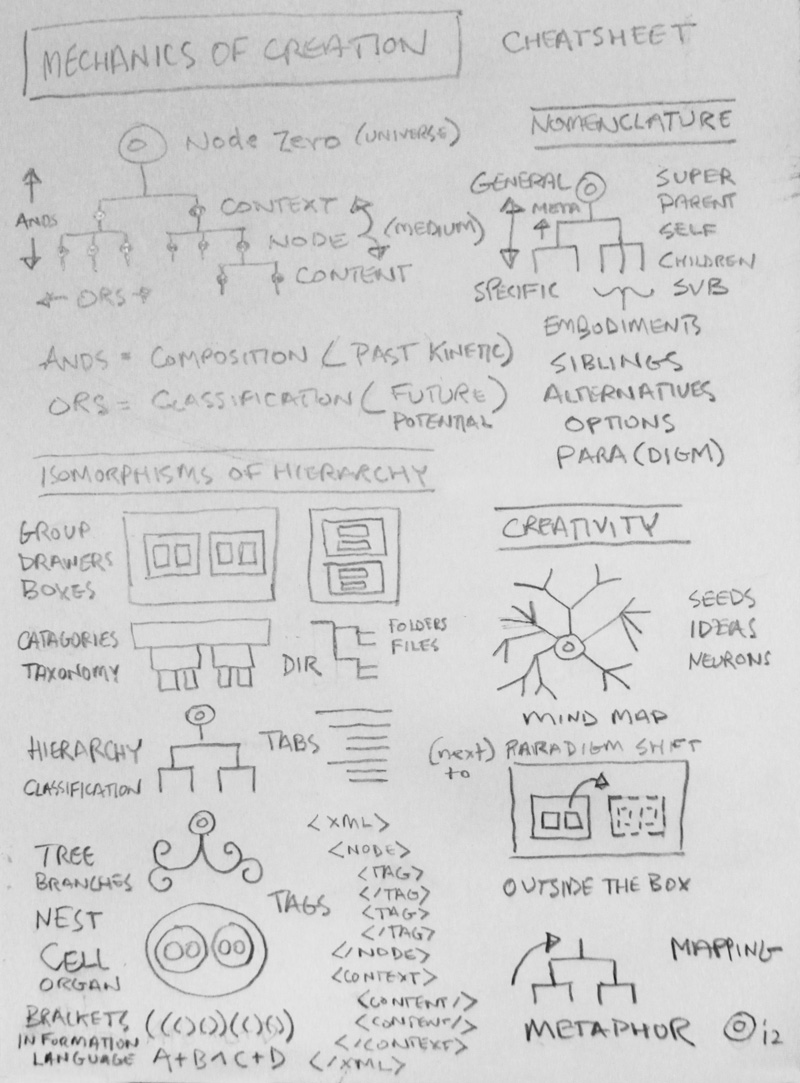 MECHANICS OF CREATION
CHEATSHEET
Node Zero (UNIVERSE)
ANDS
CONTEXT
NODE
(MEDIUM)
CONTENT
ORS
ANDS = COMPOSITION (PAST KINETIC)
ORS = CLASSIFICATION (FUTURE POTENTIAL)
NOMENCLATURE
GENERAL
META
SPECIFIC
SUPER
PARENT
SELF
CHILDREN
SUB
EMBODIMENTS
SIBLINGS
ALTERNATIVES
OPTIONS
PARA(DIGM)
ISOMORPHISMS OF HIERARCHY
GROUP
DRAWERS
BOXES
CATAGORIES
TAXONOMY
DIR
FOLDERS
FILES
HIERARCHY
CLASSIFICATION
TABS
TREE
BRANCHES
NEST
CELL
ORGAN
TAGS
<XML>
<NODE>
<TAG>
</TAG>
<TAG>
</TAG>
</NODE>
<CONTEXT>
<CONTENT/>
<CONTENT/>
</CONTEXT>
</XML>
BRACKETS ((()())(()()))
INFORMATION
LANGUAGE A+B^C+D
CREATIVITY
SEEDS
IDEAS
NEURONS
MIND MAP
(next) PARADIGM SHIFT
to
OUTSIDE THE BOX
MAPPING
METAPHOR
i2